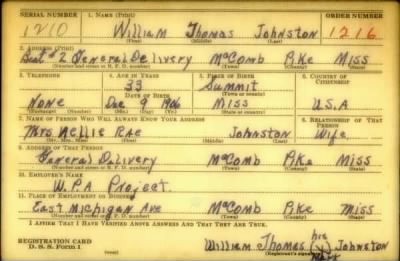 SERIAL NUMBER 1. NAME (Print) ORDER NUMBER
1210 William Thomas Johnston 1216
(First) (Middle) (Last)
2. ADDRESS (Print)
#2 General Delivery McComb Pike Miss
(Number and street or R. F. D. number) (Town) (County) (State)
3. TELEPHONE 4. AGE IN YEARS 5. PLACE OF BIRTH 6. COUNTRY OF CITIZENSHIP
33 Summit
DATE OF BIRTH (Town or county)
None Dec 9 1906 Miss U.S.A
(Mo.) (Day) (Yr.) (State or country)
7. NAME OF PERSON WHO WILL ALWAYS KNOW YOUR ADDRESS 8. RELATIONSHIP OF THAT PERSON
Mrs. Nellie Rae Johnston Wife
(Mr., Mrs., Miss) (First) (Middle) (Last)
9. ADDRESS OF THAT PERSON
General Delivery McComb Pike Miss
(Number and street or R. F. D. number) (Town) (County) (State)
10. EMPLOYER'S NAME
W.P.A Project.
11. PLACE OF EMPLOYMENT OR BUSINESS
East Michigan Ave McComb Pike Miss
(Number and street or R. F. D. number) (Town) (County) (State)
I AFFIRM THAT I HAVE VERIFIED ABOVE ANSWERS AND THAT THEY ARE TRUE.
REGISTRATION CARD
D. S. S. Form 1
William Thomas his Johnston
(Registrant's signature) mark